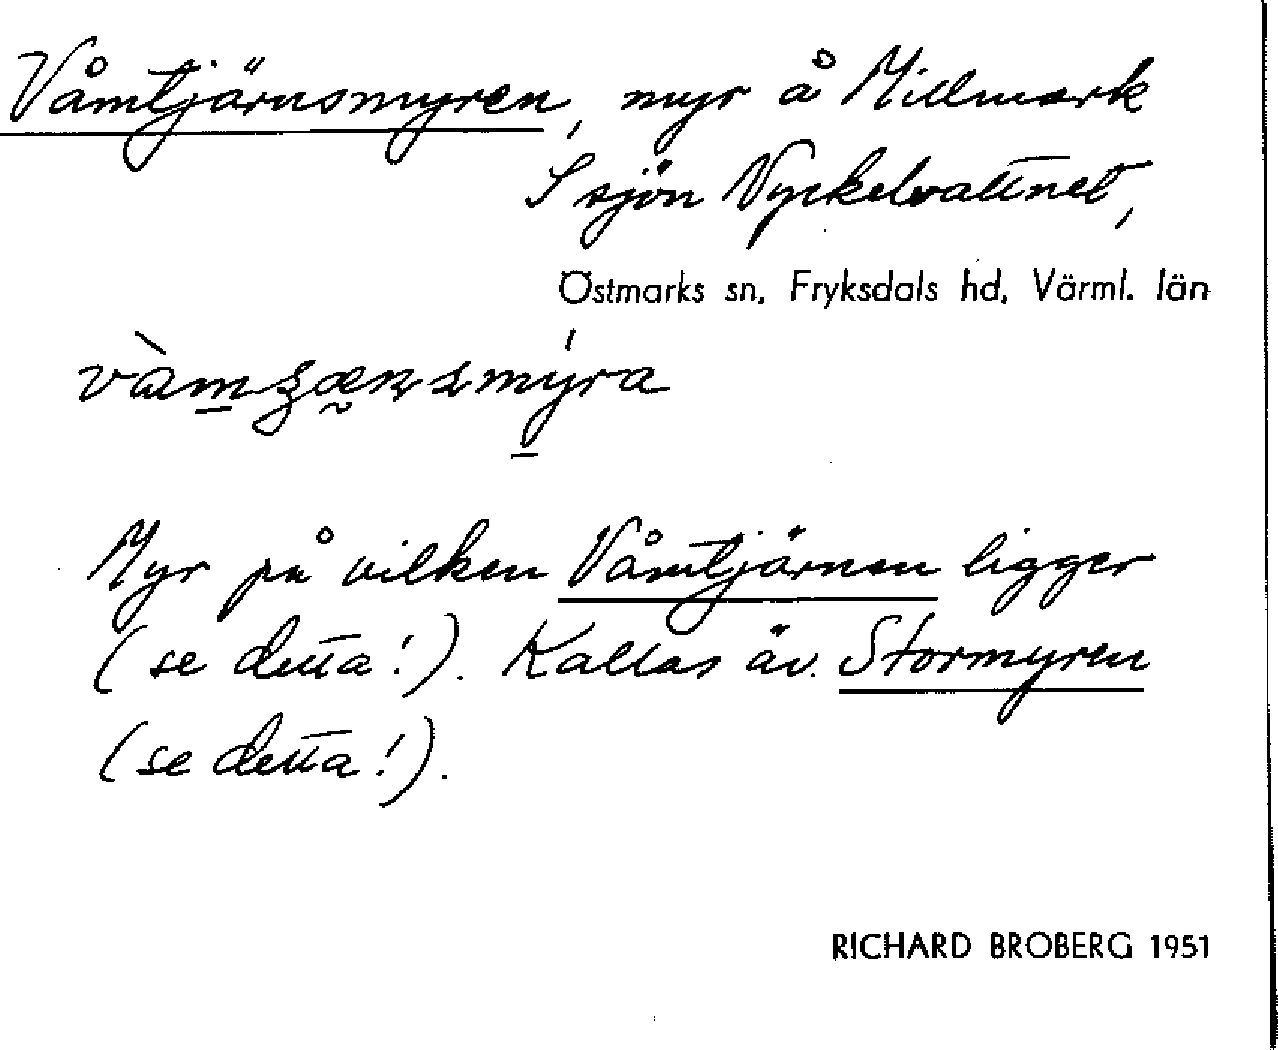 Våmtjärnsmyren, myr å Millmark
S sjön Nyckelvattnet,
Östmarks sn, Fryksdals hd, Värml. län
Myr på vilken Våmtjärnen ligger
(se detta!). Kallas äv. Stormyren
(se detta!).
RICHARD BROBERG 1951